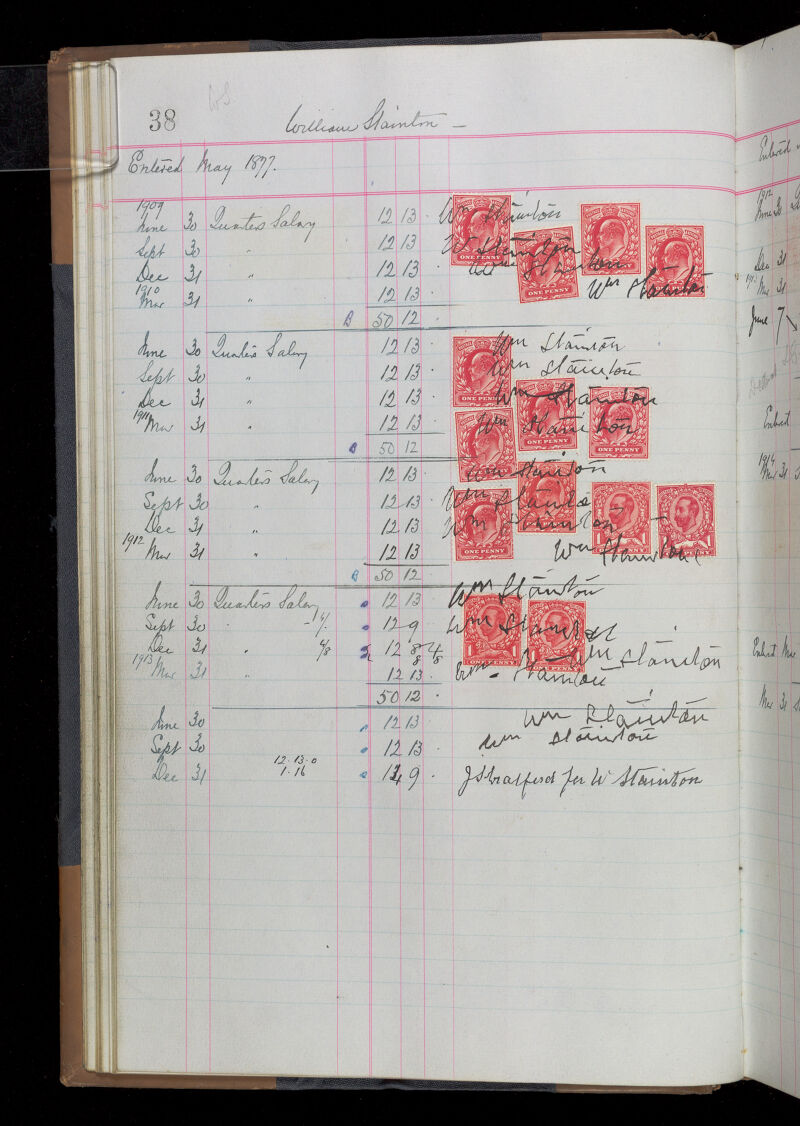 38
William Stainton —
Entered May 1877.
1909
June 30 Quarters Salary 12 13 · Wm Stainton
Sept 30 " 12 13 · W Stainton
Dec 31 " 12 13 · Wm Stainton
1910
Mar 31 " 12 13 · Wm Stainton
B 50 12 ·
June 30 Quarters Salary 12 13 · Wm Stainton
Sept 30 " 12 13 · Wm Stainton
Dec 31 " 12 13 · Wm Stainton
1911
Mar 31 " 12 13 · Wm Stainton
B 50 12
June 30 Quarters Salary 12 13 · Wm Stainton
Sept 30 " 12 13 · Wm Stainton
Dec 31 " 12 13 Wm Stainton
1912
Mar 31 " 12 13 Wm Stainton
B 50 12 ·
June 30 Quarters Salary 12 13 Wm Stainton
Sept 30 " 12 9 · Wm Stainton
Dec 31 " 4/8 12 8 4 Wm Stainton
8 8
1913
Mar 31 " 12 13 · Wm Stainton
50 12 ·
June 30 12 13 Wm Stainton
Sept 30 12 13 Wm Stainton
12·13·0
Dec 31 1·16 14 9 · for W Stainton
ONE PENNY
ONE PENNY
ONE PENNY
ONE PENNY
ONE PENNY
ONE PENNY
ONE PENNY
ONE PENNY
ONE PENNY
1 ONE PENNY 1
1 ONE PENNY 1
1 ONE PENNY 1
1 ONE PENNY 1
Entered
1912
June 30
Dec 31
Mar 31
June 7
1914
Mar 31